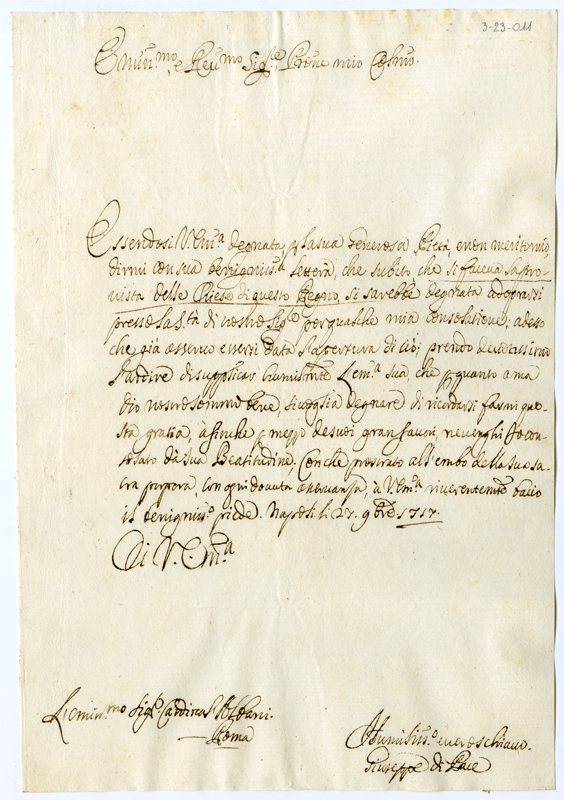 3-23-011
Emin.mo, e Reu.mo Sig.re, Prone mio Colmo.
Essendosi V. Em.a degnata, p la sua Generosa Pietà, e non merito mio,
dirmi con sua benignis.a lettera, che subito che si faceva la pro-
vista delle Chiese di questo Regno, si sarebbe degnata adoprarsi
presso la S.tà di nostro Sig.re per qualche mia consolatione; adesso
che già osservo essersi data l'apertura di ciò; prendo
l'ardire di supplicar humilmte l'em.a sua, che p quanto ama
Dio nostro sommo bene, si voglia degnare di ricordarsi farmi que-
sta gratia, à finche p mezzo de suoi gran favori, ne venghi Io con-
solato da sua Beatitudine. Con che prostrato all'embo della sua sa-
cra porpora, con ogni dovuta osservanza, à V. Em.a riverentemte bacio
il benignis.o piede. Napoli li 27. 9bre 1717.
Di V. Em.a
L'emin.mo Sig.r Cardinal Albani.
Roma
Humilis.o e vero schiavo.
Giuseppe di Pace